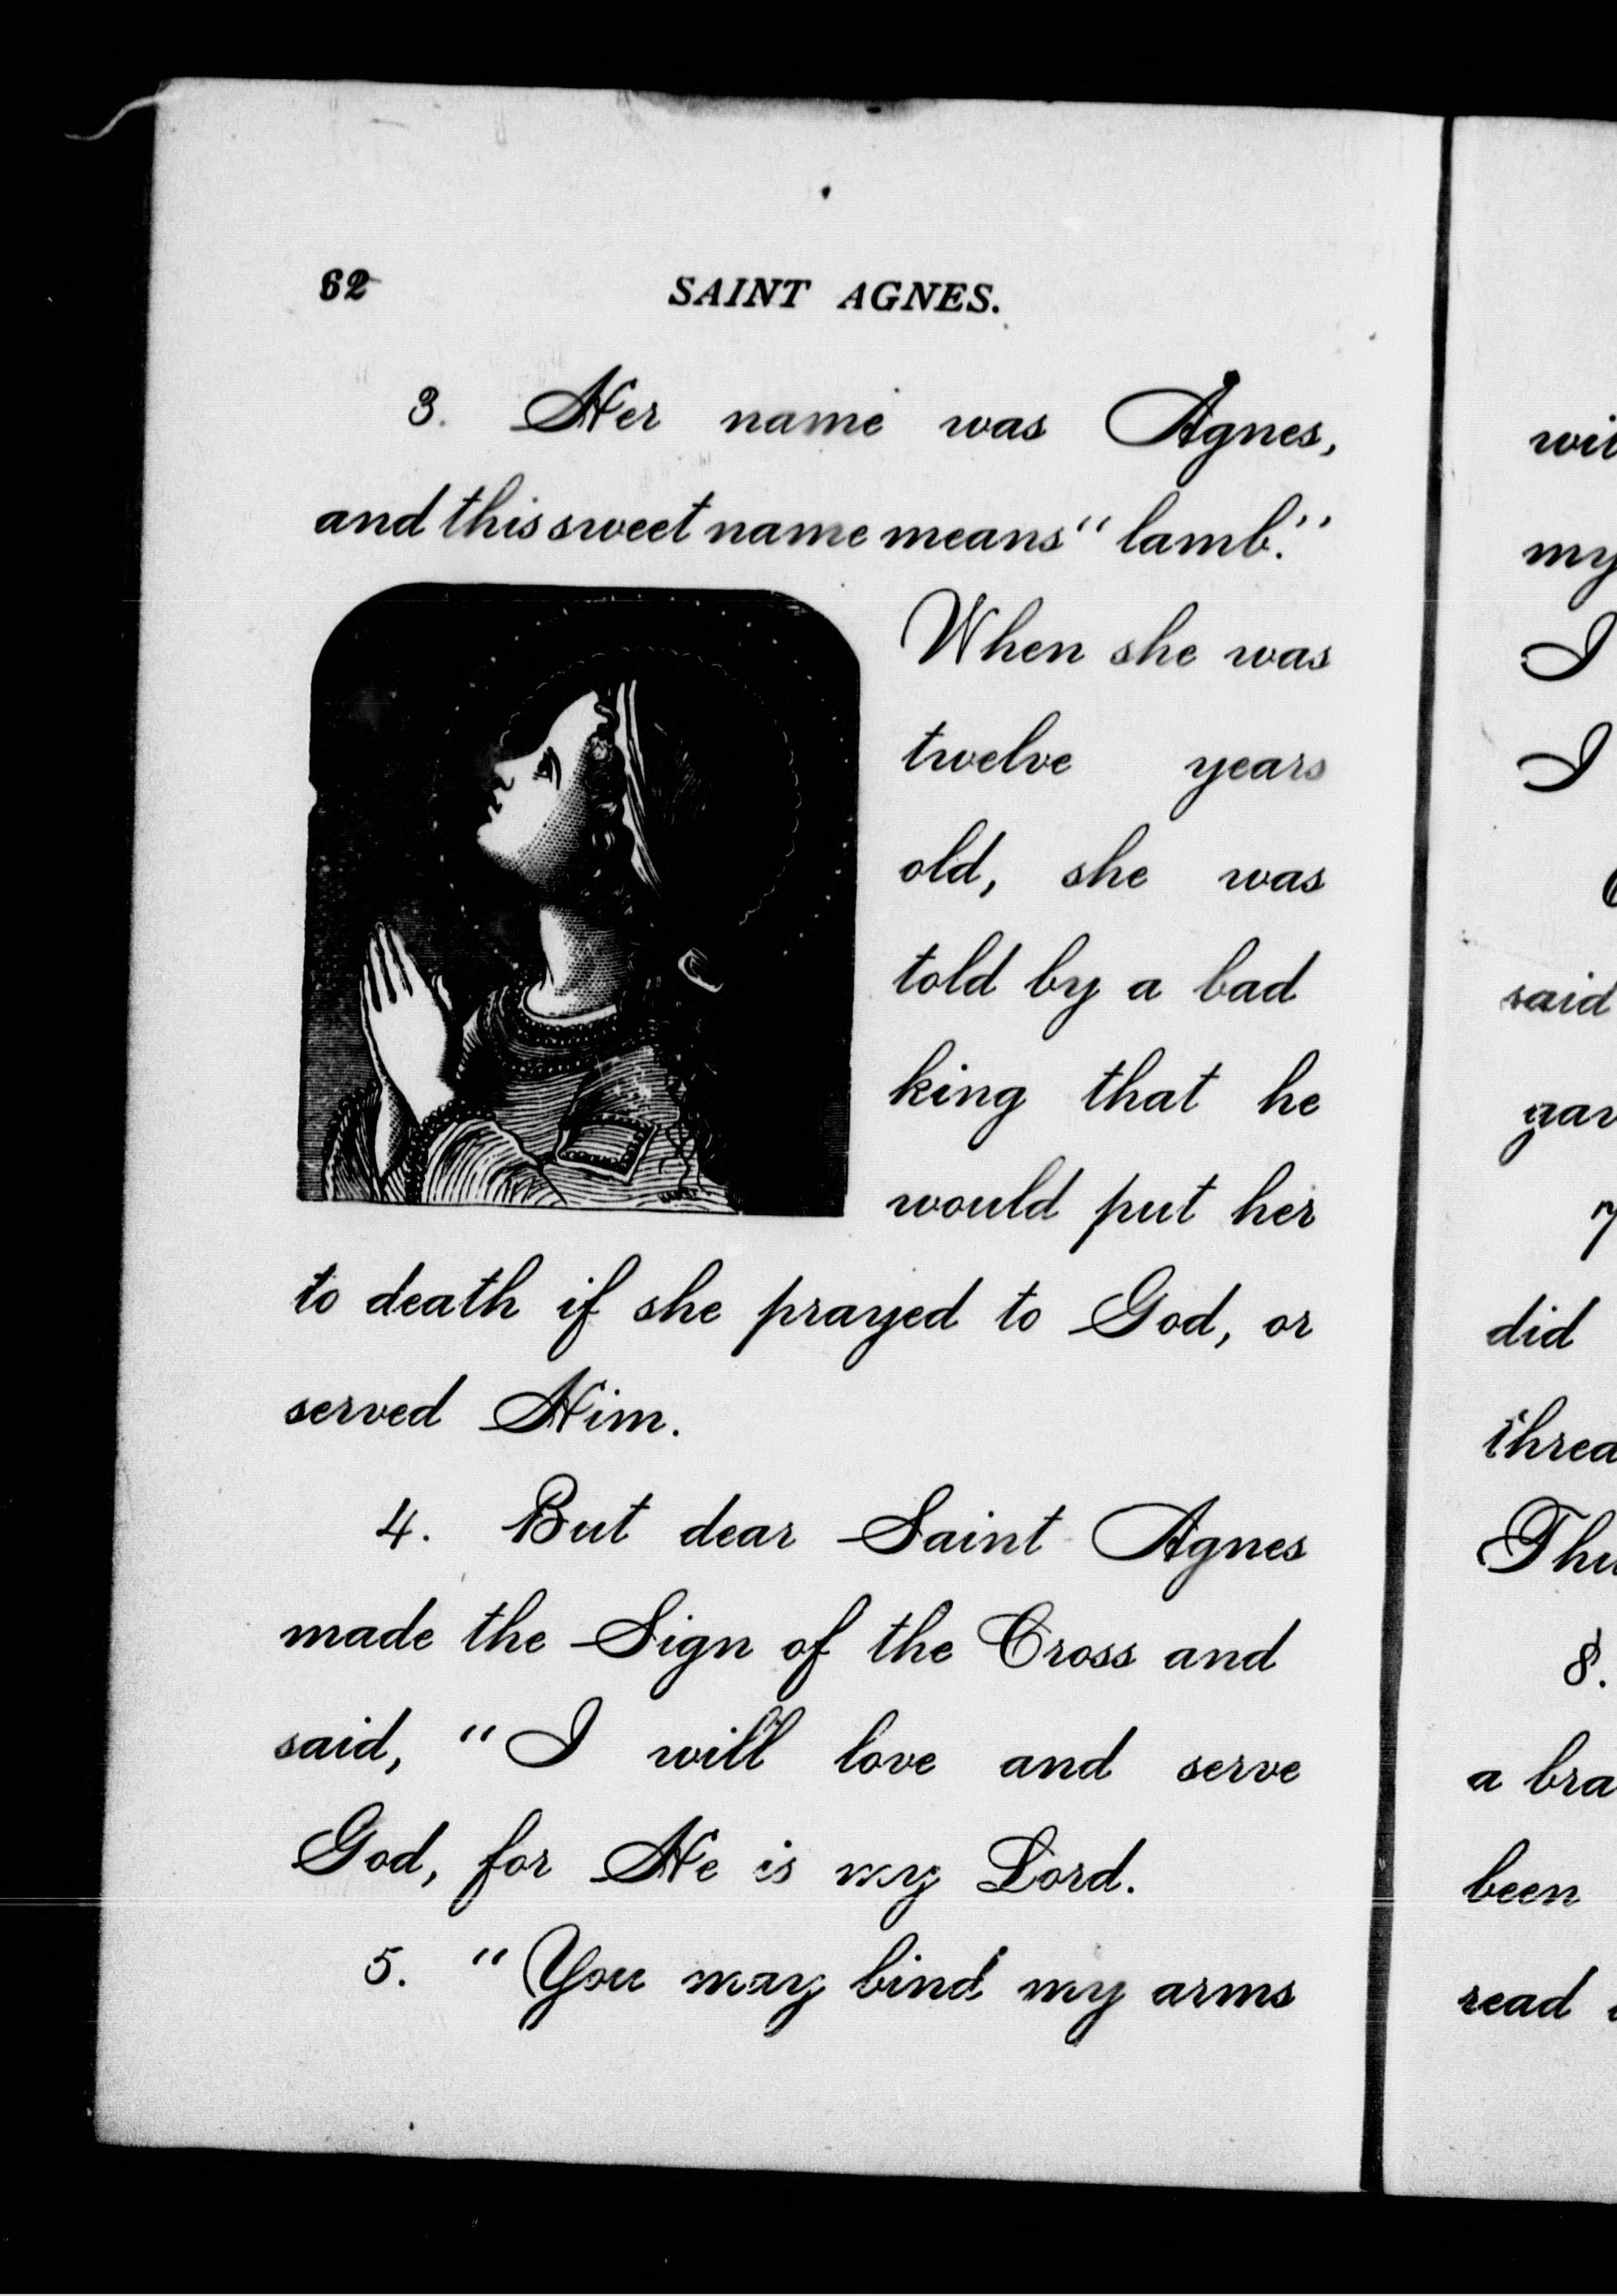 62 SAINT AGNES.
3. Her name was Agnes,
and this sweet name means "lamb."
When she was
twelve years
old, she was
told by a bad
king that he
would put her
to death if she prayed to God, or
served Him.
4. But dear Saint Agnes
made the Sign of the Cross and
said, "I will love and serve
God, for He is my Lord.
5. "You may bind my arms
my
I
I
said
7
did
8.
a
been
read